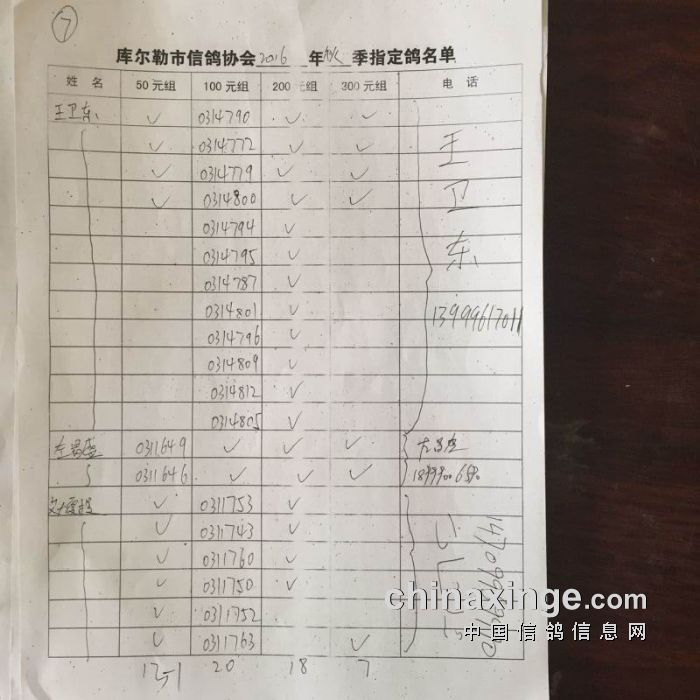 7
库尔勒市信鸽协会2016年秋季指定鸽名单
姓 名 50元组 100元组 200元组 300元组 电 话
王卫东 ✓ 0314790 ✓ ✓
✓ 0314772 ✓ ✓
✓ 0314779 ✓ ✓
✓ 0314800 ✓ ✓
0314794 ✓
0314795 ✓
0314787 ✓
0314801 ✓
0314796 ✓
0314809 ✓
0314812 ✓
0314805 ✓
王卫东
13999617011
0311649 ✓ ✓ ✓
0311646 ✓ ✓ ✓
✓ 0311753 ✓
✓ 0311743 ✓
✓ 0311760 ✓
✓ 0311750 ✓
✓ 0311752
✓ 0311763 ✓
20 18 7
chinaxinge.com
中国信鸽信息网